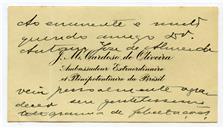 Ao eminente e muito
querido amigo Dr.
Antonio José de Almeida
J. M. Cardoso de Oliveira
Ambassadeur Extraordinaire
et Plénipotentiaire du Brésil
vem pessoalmente agra-
decer seu gentilissimo
telegramma de felicitações